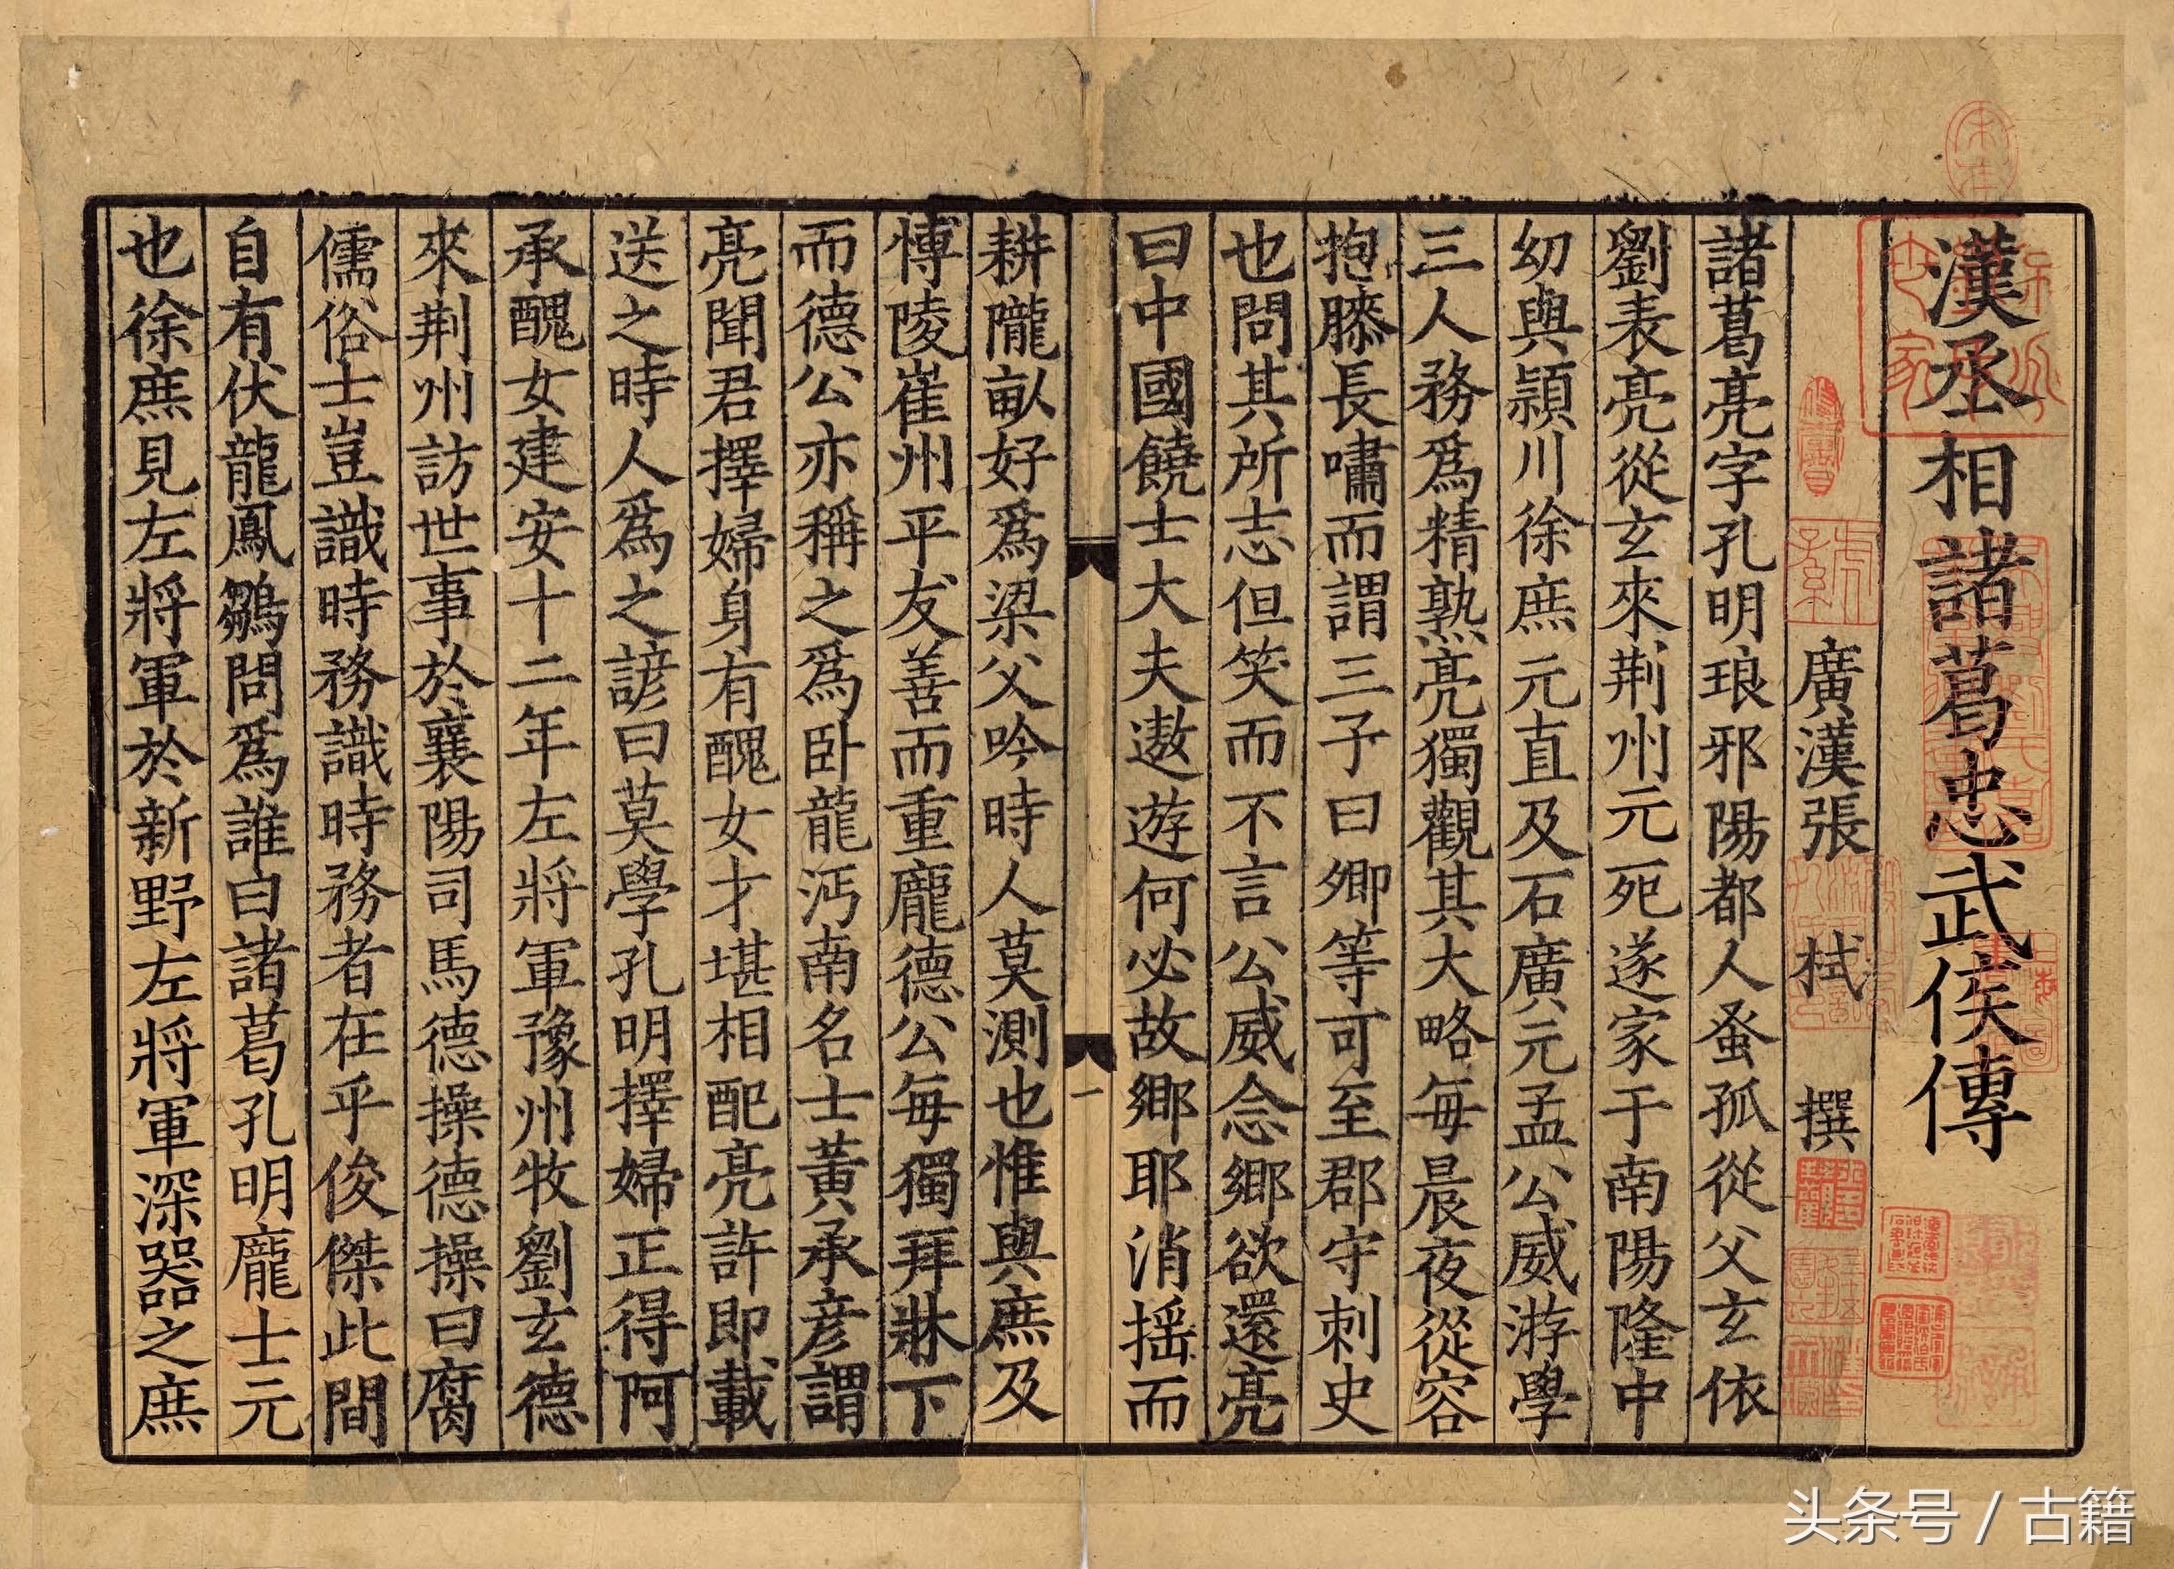 漢丞相諸葛忠武侯傳
廣漢張 栻 撰
諸葛亮字孔明琅邪陽都人蚤孤從父玄依
劉表亮從玄來荆州元死遂家于南陽隆中
㓜與潁川徐庶元直及石廣元孟公威游學
三人務爲精熟亮獨觀其大略每晨夜從容
抱膝長嘯而謂三子曰卿等可至郡守刺史
也問其所志但笑而不言公威念鄉欲還亮
曰中國饒士大夫遨遊何必故鄉耶消揺而
耕隴畝好爲梁父吟時人莫測也惟與庶及
博陵崔州平友善而重龐德公每獨拜牀下
而德公亦稱之爲卧龍沔南名士黃承彦謂
亮聞君擇婦身有醜女才堪相配亮許即載
送之時人爲之諺曰莫學孔明擇婦正得阿
承醜女建安十二年左將軍豫州牧劉玄德
來荆州訪世事於襄陽司馬德操德操曰腐
儒俗士豈識時務識時務者在乎俊傑此間
自有伏龍鳳鶵問爲誰曰諸葛孔明龐士元
也徐庶見左將軍於新野左將軍深器之庶
一
头条号 / 古籍